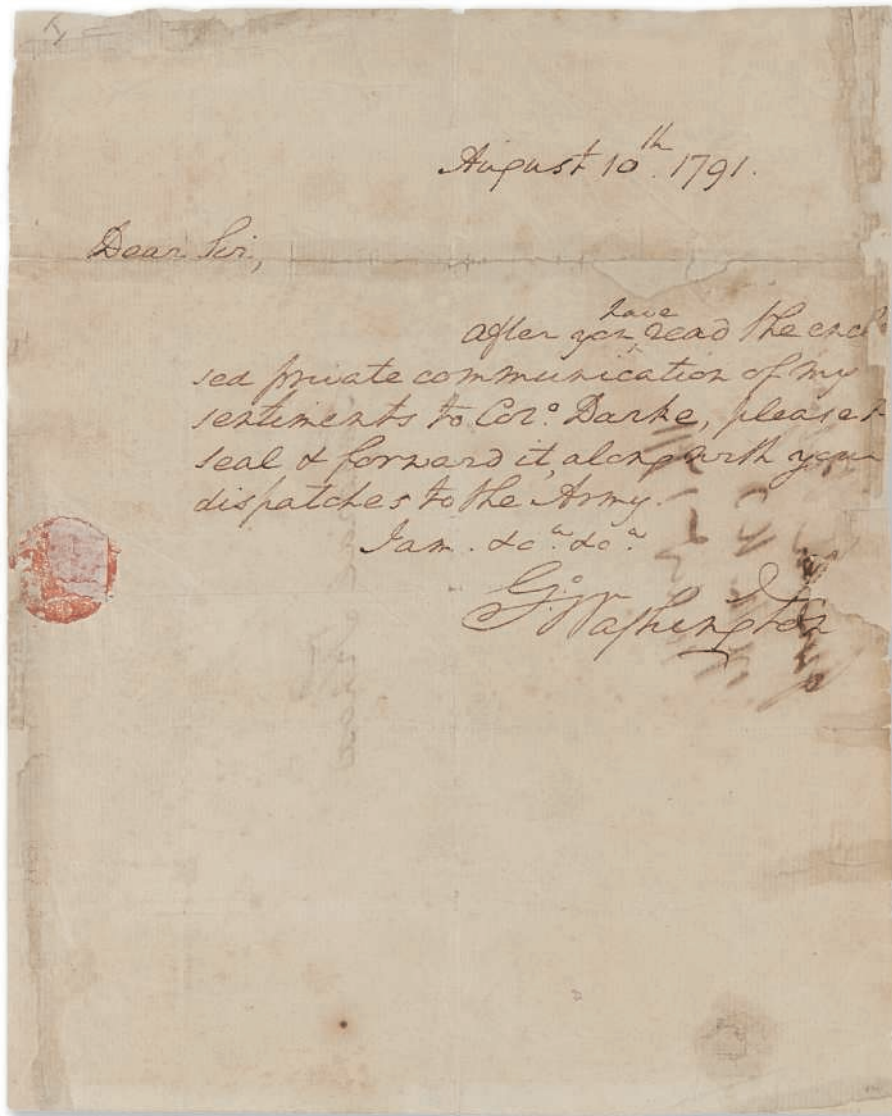 August 10th. 1791.
Dear Sir,
have
after you read the enclo
sed private communication of my
sentiments to Colo. Darke, please
seal & forward it, along with your
dispatches to the Army.
I am. &ca. &ca.
Go: Washington